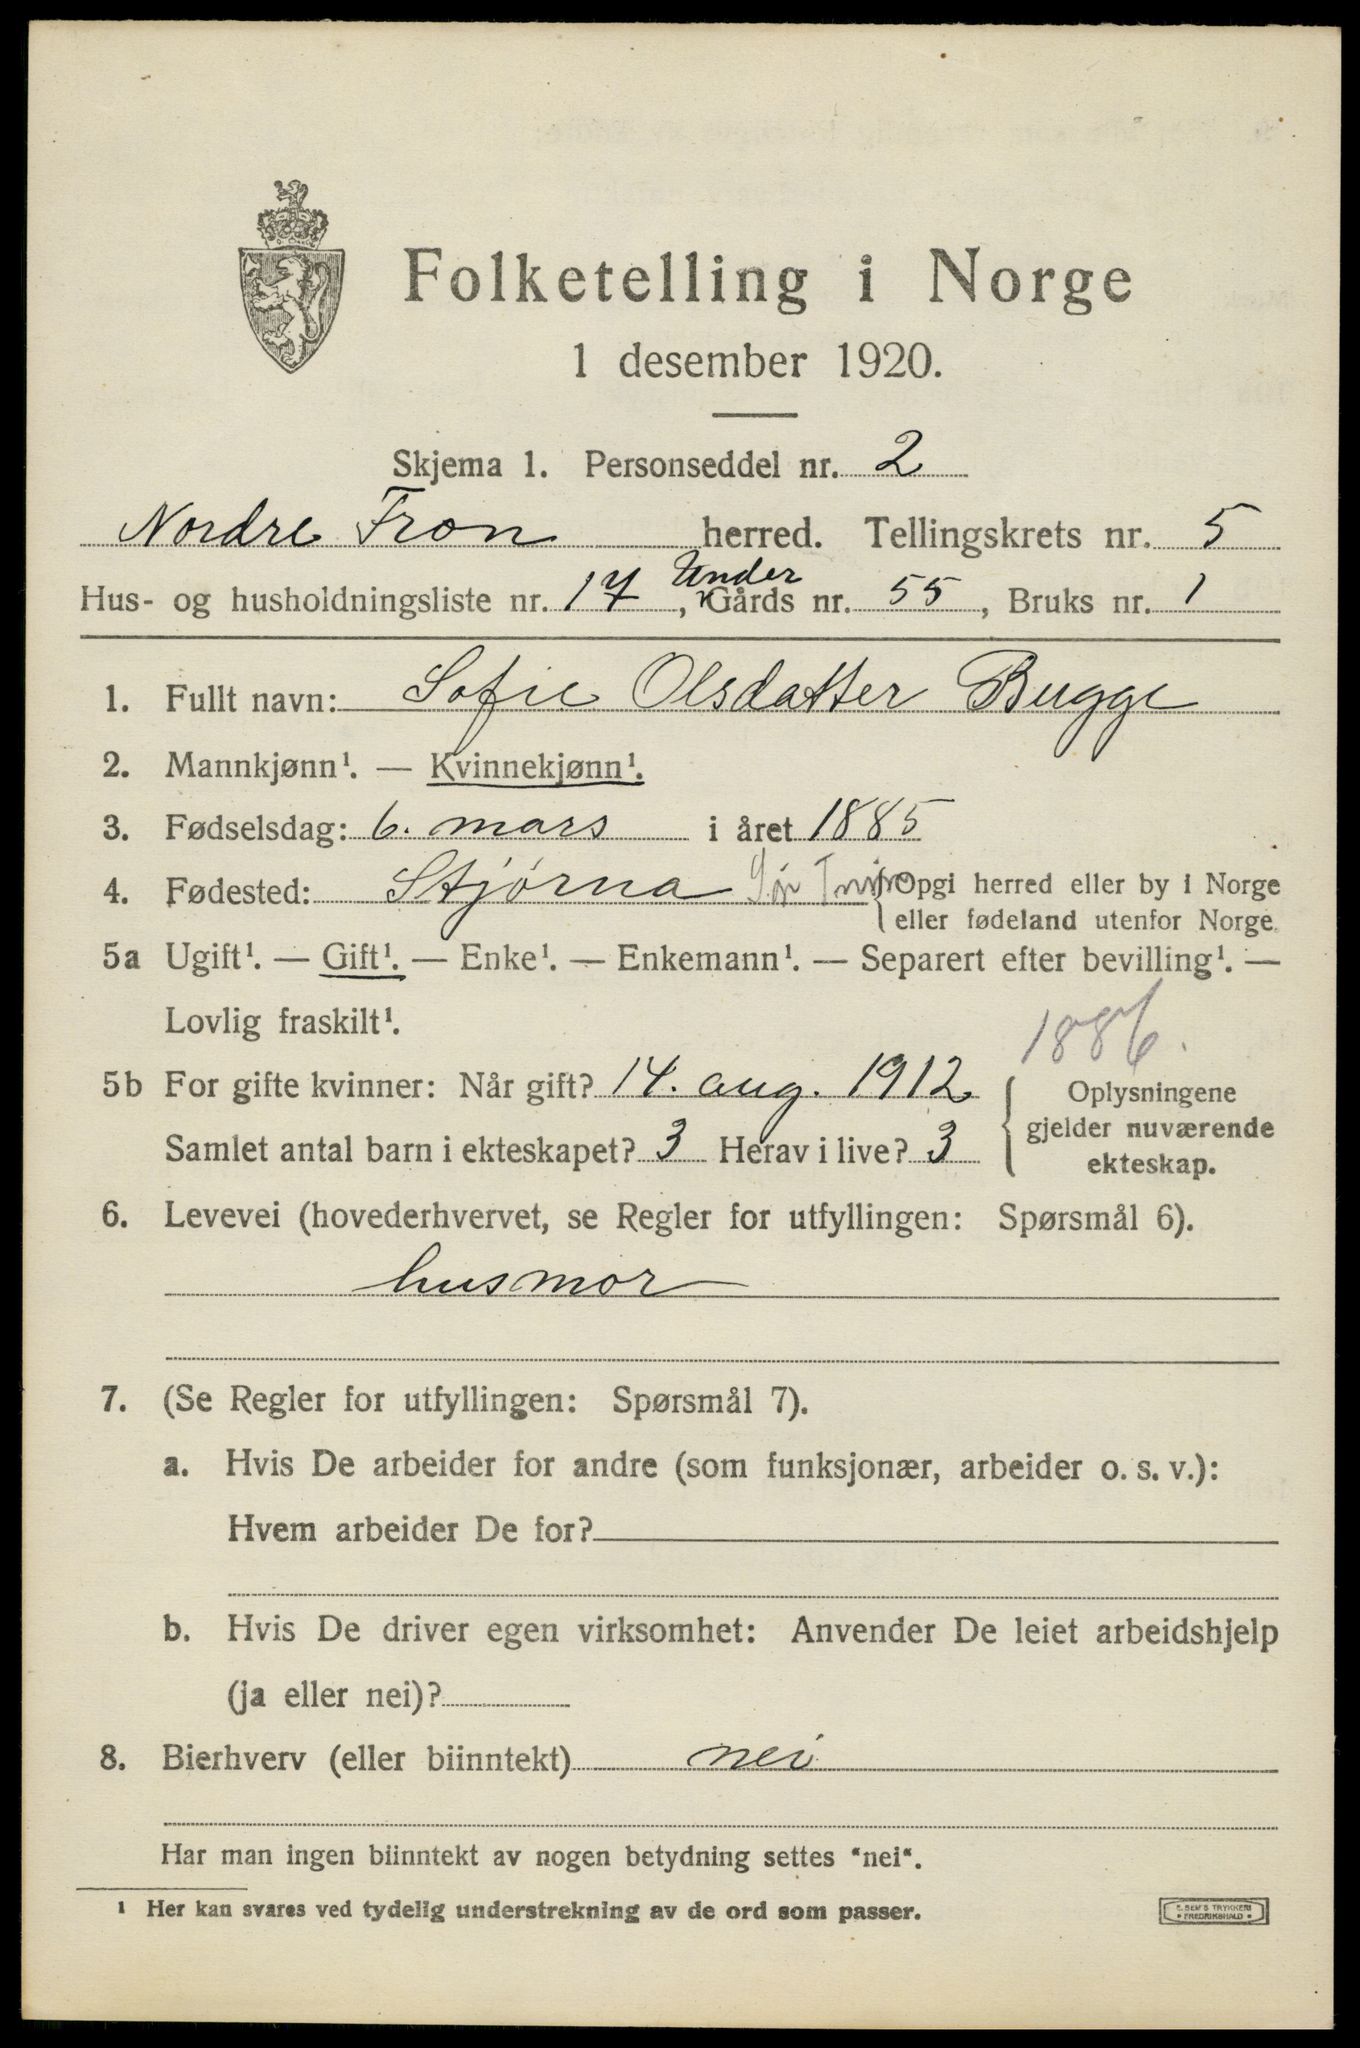 Folketelling i Norge
1 desember 1920.
Skjema 1. Personseddel nr. 2
Nordre Fron herred. Tellingskrets nr. 5
Under
Hus- og husholdningsliste nr. 17, Gårds nr. 55, Bruks nr. 1
1. Fullt navn: Sofie Olsdatter Bugge
2. Mannkjønn¹. — Kvinnekjønn¹.
3. Fødselsdag: 6. mars i året 1885
4. Fødested: Stjørna Sør Opgi herred eller by i Norge
eller fødeland utenfor Norge.
5a Ugift¹. — Gift¹. — Enke¹. — Enkemann¹. — Separert efter bevilling¹. —
Lovlig fraskilt¹.
1886.
5b For gifte kvinner: Når gift? 14. aug. 1912 Oplysningene
gjelder nuværende
Samlet antal barn i ekteskapet? 3 Herav i live? 3 ekteskap.
6. Levevei (hovederhvervet, se Regler for utfyllingen: Spørsmål 6).
husmor
7. (Se Regler for utfyllingen: Spørsmål 7).
a. Hvis De arbeider for andre (som funksjonær, arbeider o. s. v.):
Hvem arbeider De for?
b. Hvis De driver egen virksomhet: Anvender De leiet arbeidshjelp
(ja eller nei)?
8. Bierhverv (eller biinntekt) nei
Har man ingen biinntekt av nogen betydning settes "nei".
¹ Her kan svares ved tydelig understrekning av de ord som passer.
E. SEM'S TRYKKERI
• FREDRIKSHALD •